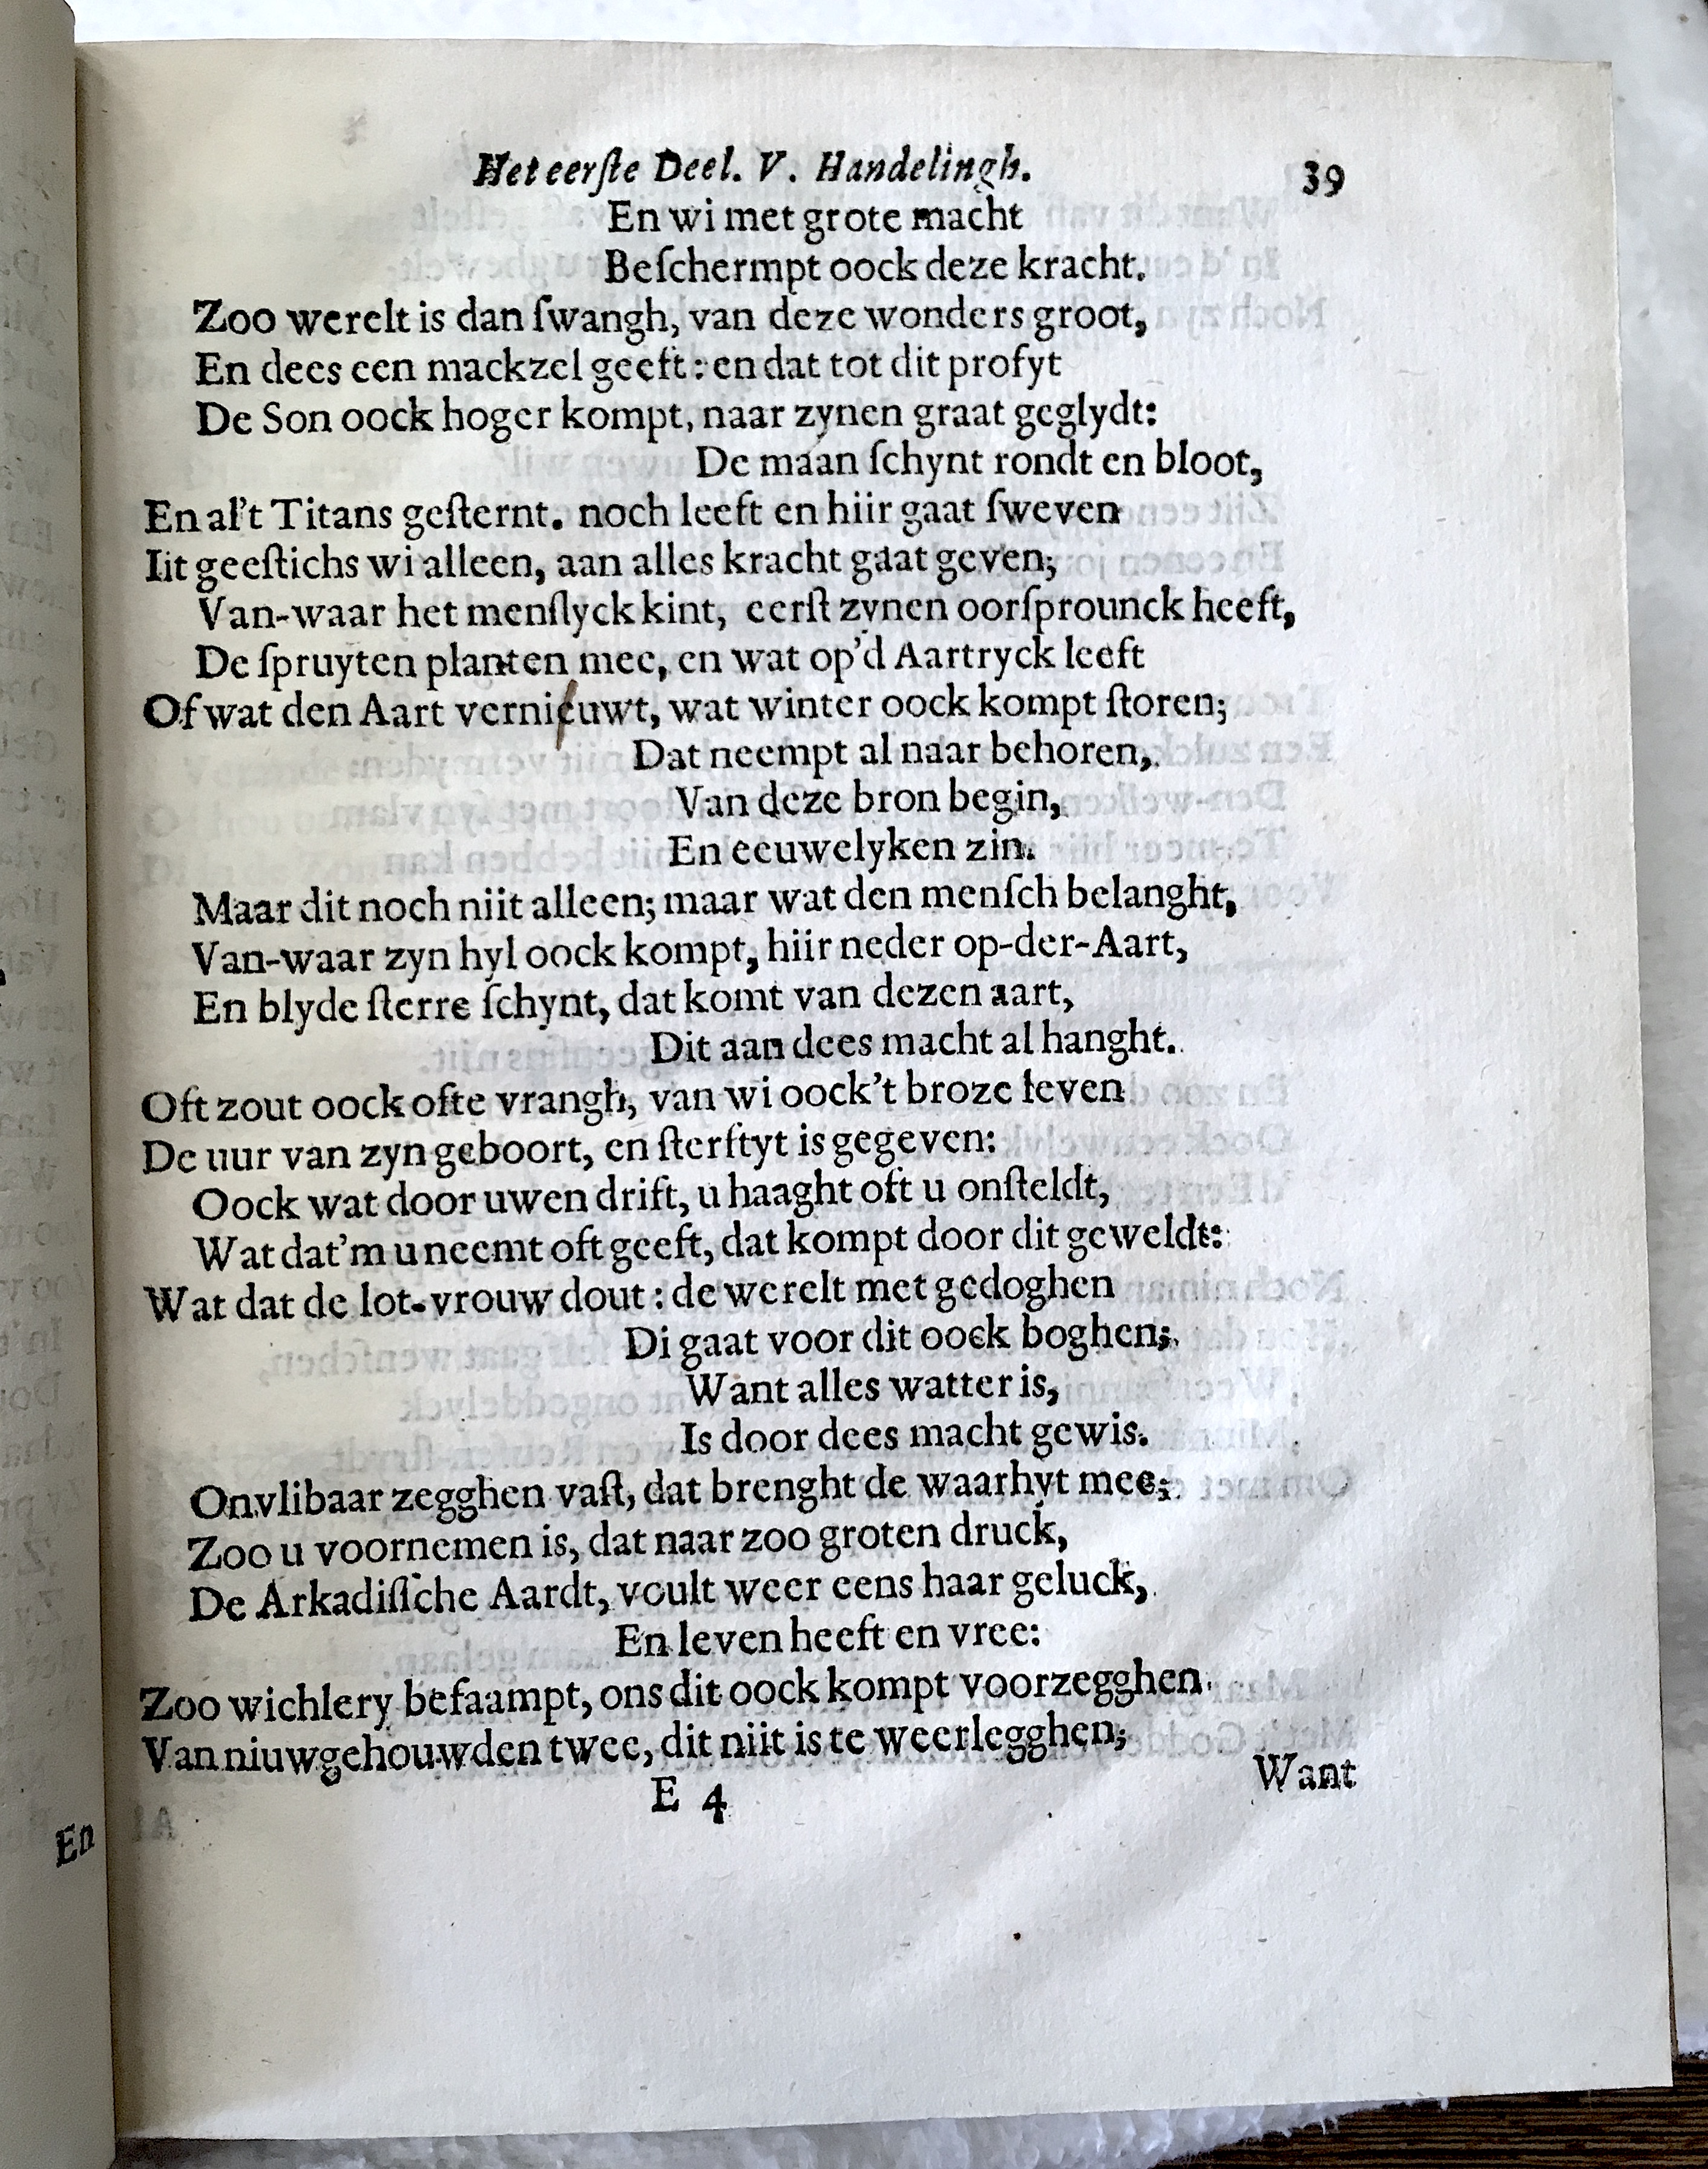 Het eerſte Deel. V. Handelingh. 39
En wi met grote macht
Beſchermpt oock deze kracht.
Zoo werelt is dan ſwangh, van deze wonders groot,
En dees een mackzel geeft: en dat tot dit profyt
De Son oock hoger kompt, naar zynen graat geglydt:
De maan ſchynt rondt en bloot,
En al't Titans geſternt. noch leeft en hiir gaat ſweven
Iit geeſtichs wi alleen, aan alles kracht gaat geven;
Van-waar het menſlyck kint, eerſt zynen oorſprounck heeft,
De ſpruyten planten mee, en wat op'd Aartryck leeft
Of wat den Aart vernieuwt, wat winter oock kompt ſtoren;
Dat neempt al naar behoren,
Van deze bron begin,
En eeuwelyken zin.
Maar dit noch niit alleen; maar wat den menſch belanght,
Van-waar zyn hyl oock kompt, hiir neder op-der-Aart,
En blyde ſterre ſchynt, dat komt van dezen aart,
Dit aan dees macht al hanght.
Oft zout oock ofte vrangh, van wi oock't broze leven
De uur van zyn geboort, en ſterftyt is gegeven:
Oock wat door uwen drift, u haaght oft u onſteldt,
Wat dat'm u neemt oft geeft, dat kompt door dit geweldt:
Wat dat de lot-vrouw dout: de werelt met gedoghen
Di gaat voor dit oock boghen;
Want alles watter is,
Is door dees macht gewis.
Onvlibaar zegghen vaſt, dat brenght de waarhyt mee;
Zoo u voornemen is, dat naar zoo groten druck,
De Arkadiſſche Aardt, voult weer eens haar geluck,
En leven heeft en vree:
Zoo wichlery befaampt, ons dit oock kompt voorzegghen
Van niuwgehouwden twee, dit niit is te weerlegghen;
E 4
Want
En